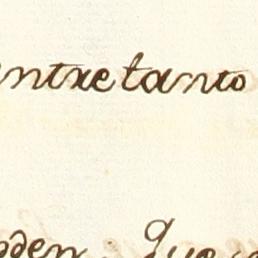 entretanto
den. Que